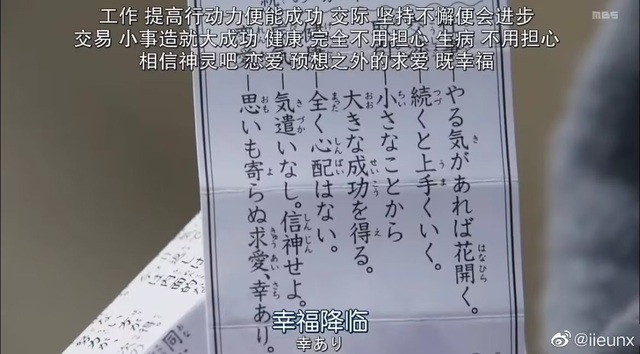 工作 提高行动力便能成功 交际 坚持不懈便会进步
交易 小事造就大成功 健康 完全不用担心 生病 不用担心
相信神灵吧 恋爱 预想之外的求爱 既幸福
MBS
やる気があれば花開く。
続くと上手くいく。
小さなことから
大きな成功を得る。
全く心配はない。
気遣いなし。信神せよ。
思いも寄らぬ求愛、幸あり。
幸福降临
幸あり
@iieunx